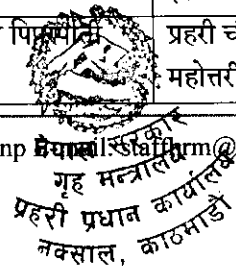 पिपरा
प्रहरी च
महोत्तरी
np
mail:staffhrm@
नेपाल सरकार
गृह मन्त्रालय
प्रहरी प्रधान कार्यालय
नक्साल, काठमाडौं